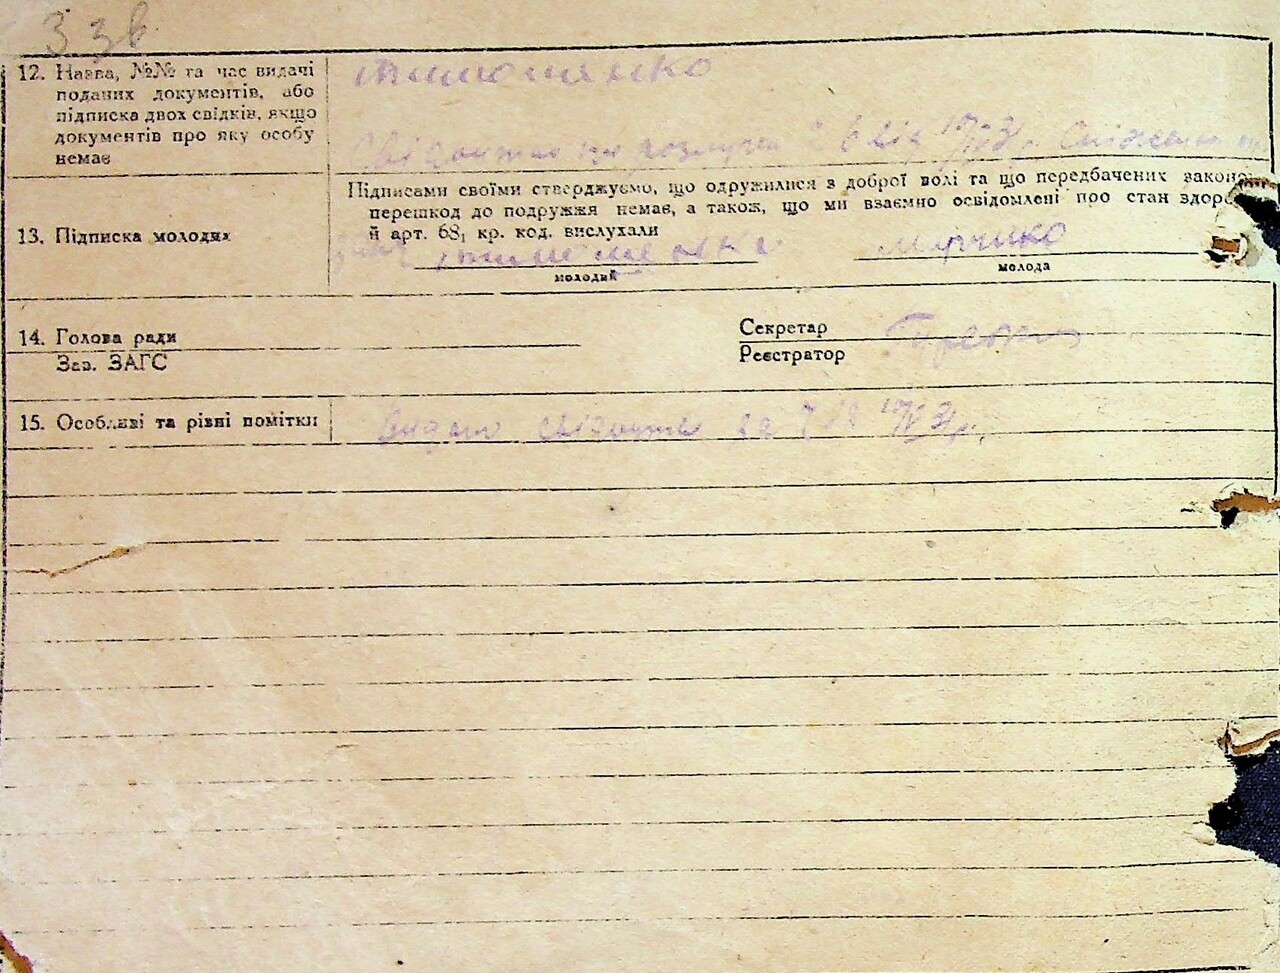 3 зв.
12. Назва, №№ та час видачі
поданих документів, або
підписка двох свідків, якщо
документів про яку особу
немає
Тимошенко
Свідоцтво про розлуку № 6 від
13. Підписка молодих
Підписами своїми стверджуємо, що одружилися з доброї волі та що передбачених законо
перешкод до подружжя немає, а також, що ми взаємно освідомлені про стан здоро
й арт. 68, кр. код. вислухали
Тимошенко
молодий
Марченко
молода
14. Голова ради
Зав. ЗАГС
Секретар
Реєстратор
15. Особливі та рівні помітки
Видано свідоцтво за 7